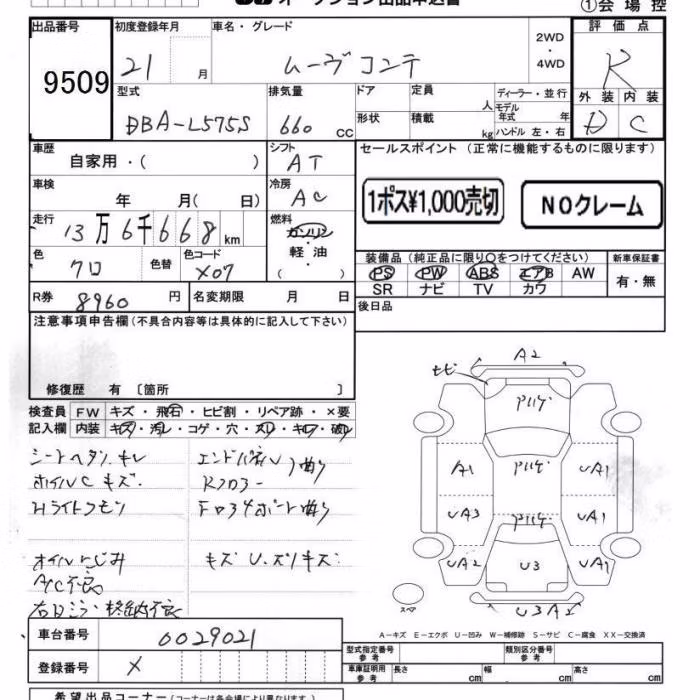 ①会場控
出品番号
9509
初度登録年月
21 月
車名・グレード
ムーヴコンテ
2WD
・
4WD
評価点
R
型式
DBA-L575S
排気量
660 cc
ドア
形状
定員 人
積載 kg
ディーラー・並行
モデル年式 年
ハンドル 左・右
外装 内装
D C
車歴
自家用・( )
シフト
AT
セールスポイント (正常に機能するものに限ります)
1ポス¥1,000売切
NOクレーム
車検
年 月( 日)
冷房
AC
走行
13万6千668km
燃料
ガソリン
軽油
( ・ )
色
クロ
色替
色コード
X07
装備品 (純正品に限り○をつけてください)
新車保証書
PS PW ABS エアB AW
SR ナビ TV カワ
有・無
R券
8960 円
名変期限 月 日
後日品
注意事項申告欄 (不具合内容等は具体的に記入して下さい)
修復歴 有 〔箇所 〕
検査員
記入欄
FW キズ・飛石・ヒビ割・リペア跡・×要
内装 キズ・汚レ・コゲ・穴・スレ・キレ・破レ
シートヘタリ、キレ
ホイルC キズ
Hライトクモリ
エンドパネル 曲り
Rフロアー
オイルにじみ
A/C不良
右Dミラー格納不良
キズ U、スリキズ
A2
モヒ
アリゲ
A1
アリゲ
UA1
UA3
アリゲ
UA1
UA2
U3
UA1
U3 A2
スペア
A-キズ E-エクボ U-凹み W-補修跡 S-サビ C-腐食 XX-交換済
車台番号
0029021
登録番号
X
型式指定番号
参考
類別区分番号
参考
車庫証明用
参考
長さ cm
幅 cm
高さ cm
希望出品コーナー (コーナーは各会場により異なります。)